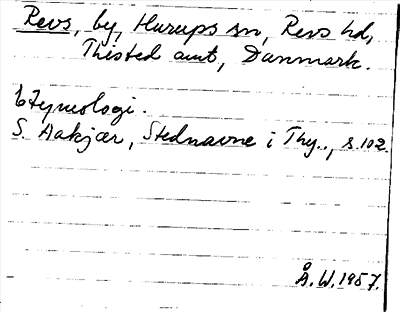 Revs, by, Hurups sn, Revs hd,
Thisted amt, Danmark.
Etymologi.
S. Aakjær, Stednavne i Thy.., s.102.
Å.W.1957.